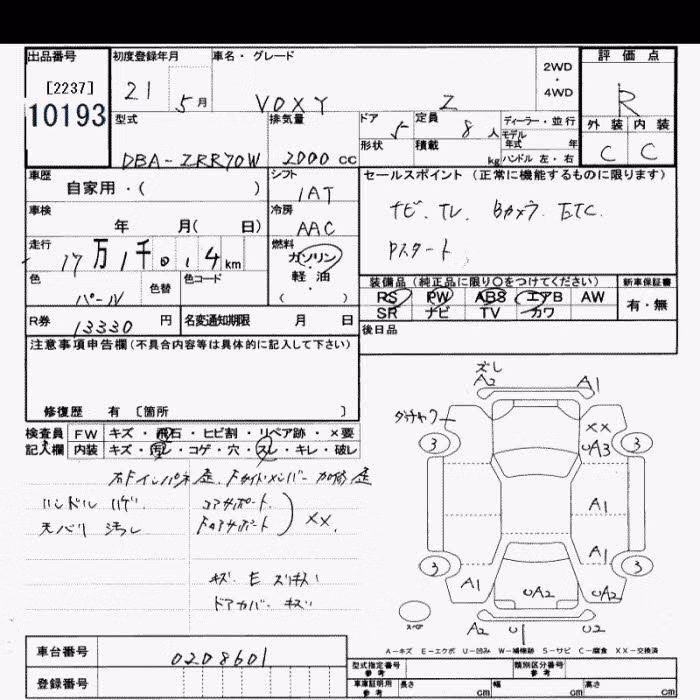 出品番号
[2237]
10193
初度登録年月
21 5月
車名・グレード
VOXY Z
2WD
・
4WD
評価点
R
外装 内装
C C
型式
DBA-ZRR70W
排気量
2000 cc
ドア 5
形状
定員 8人
積載 kg
ディーラー・並行
モデル年式 年
ハンドル 左・右
車歴
自家用・( )
シフト
IAT
セールスポイント (正常に機能するものに限ります)
ナビ. TV. Bカメラ. ETC.
Pスタート
車検
年 月( 日)
冷房
AAC
走行
17万1千0.4km
燃料
ガソリン
・
軽油
( )
色
パール
色替
色コード
装備品 (純正品に限り〇をつけてください)
PS PW ABS エアB AW
SR ナビ TV カワ
新車保証書
有・無
R券 13330円
名変通知期限 月 日
後日品
注意事項申告欄 (不具合内容等は具体的に記入して下さい)
修復歴 有 〔箇所 〕
検査員記入欄
FW キズ・飛石・ヒビ割・リペア跡・×要
内装 キズ・汚レ・コゲ・穴・スレ・キレ・破レ
ハンドル ハゲ
天バリ 汚レ
コアサポート
XX.
キズ・E
ドアカバー キズ
ズレ
A2 A1
XX
UA3
3 3
A1
A1
3 3
A1 UA2 UA2
スペア
A2 U1 U2
A-キズ E-エクボ U-凹み W-補修跡 S-サビ C-腐食 XX-交換済
車台番号 0208601
登録番号
型式指定番号 参考
類別区分番号 参考
車庫証明用 参考
長さ cm 幅 cm 高さ cm